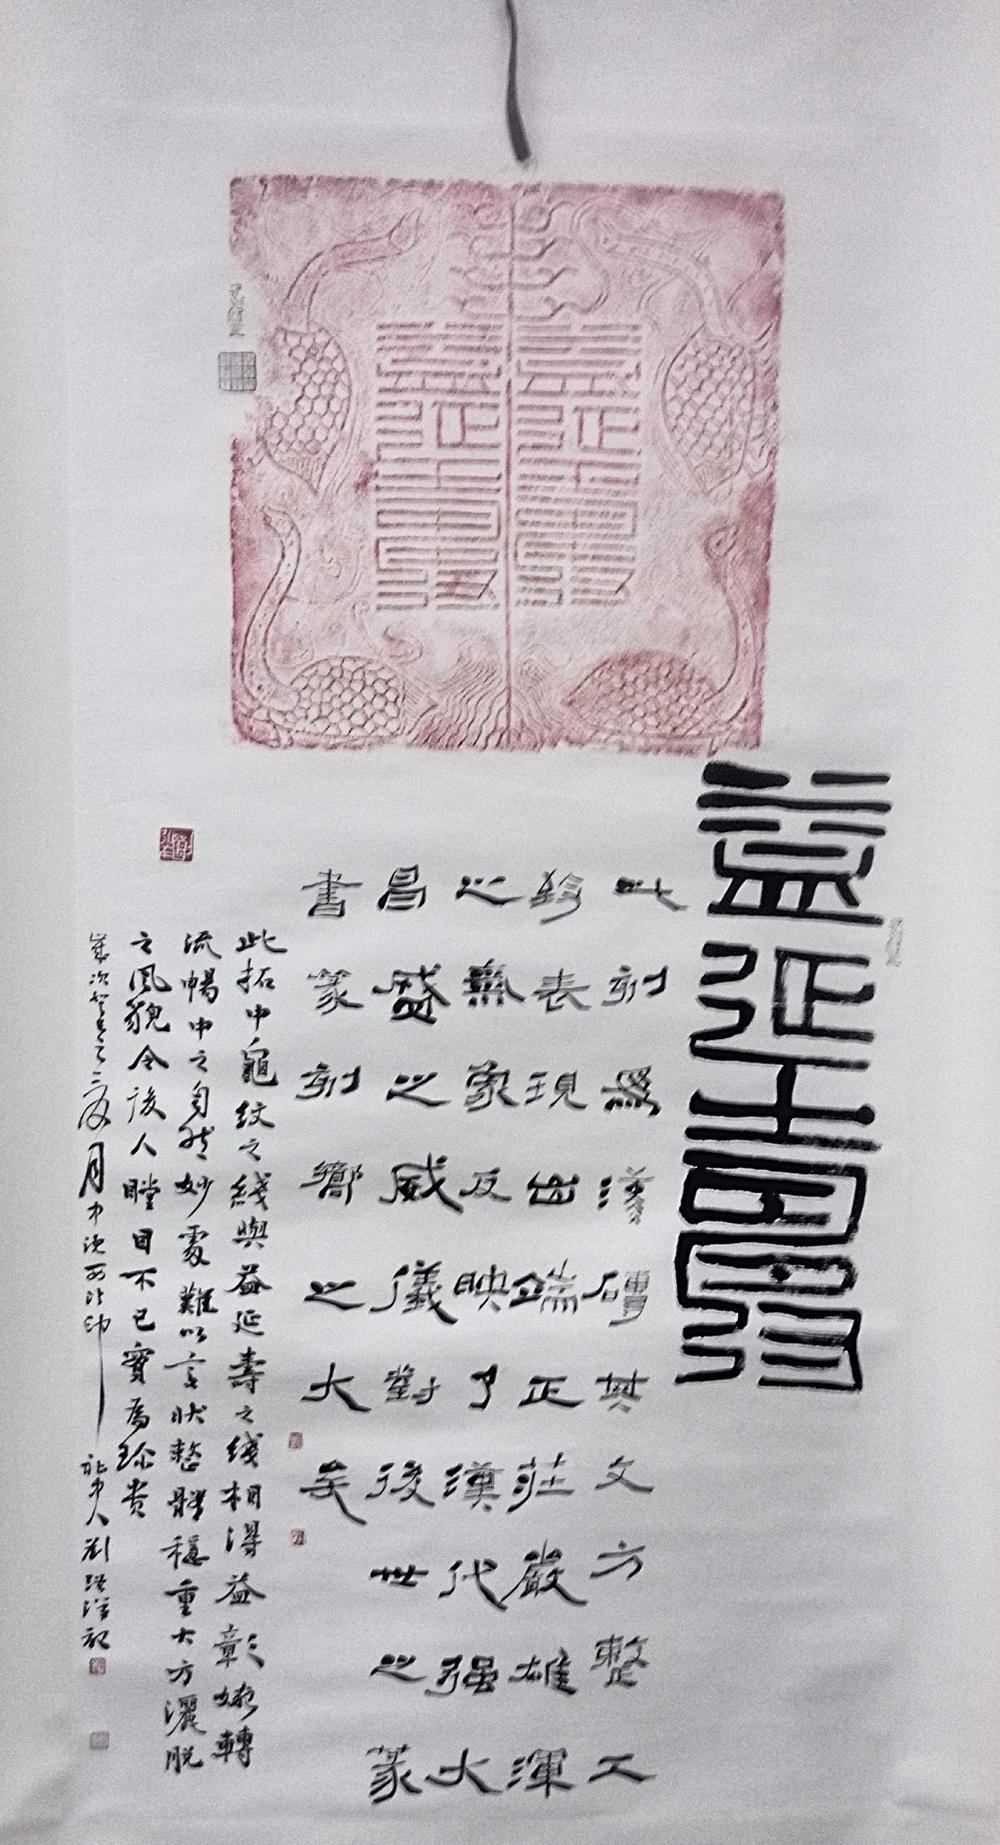 益延壽
此刻爲漢磚其文方整工
整表現出端正莊嚴雄渾
之無象反映了漢代强大
昌盛之威儀對後世之篆
書篆刻嚮之大矣
此拓中龜紋之綫與益延壽之綫相得益彰婉轉
流暢中之自然妙處難以言狀整體穩重大方灑脫
之風貌令後人瞠目不已實爲珍貴
歲次癸 月 人劉 記